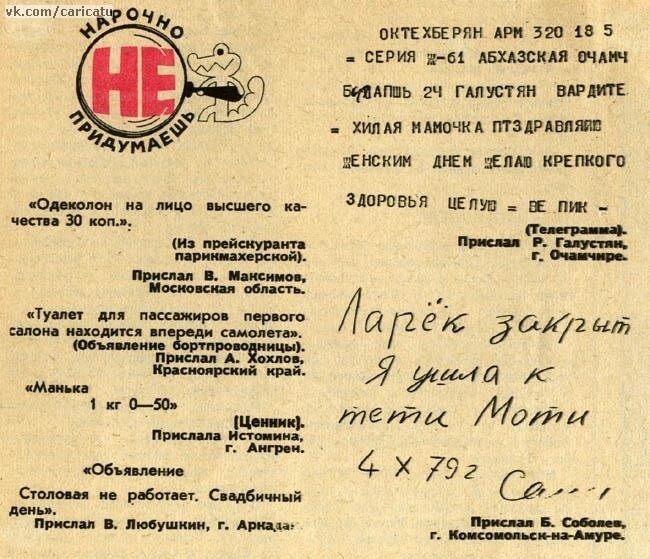 vk.com/caricatu
НАРОЧНО
НЕ
ПРИДУМАЕШЬ
«Одеколон на лицо высшего ка-
чества 30 коп.».
(Из прейскуранта
парикмахерской).
Прислал В. Максимов,
Московская область.
«Туалет для пассажиров первого
салона находится впереди самолета».
(Объявление бортпроводницы).
Прислал А. Хохлов,
Красноярский край.
«Манька
1 кг 0—50»
(Ценник).
Прислала Истомина,
г. Ангрен.
«Объявление
Столовая не работает. Свадбичный
день».
Прислал В. Любушкин, г.
ОКТЕХБЕРЯН АРМ 320 18 5
= СЕРИЯ Ж-61 АБХАЗСКАЯ ОЧАМЧ
24 ГАЛУСТЯН ВАРДИТЕ
= ХИЛАЯ МАМОЧКА ПТЗДРАВЛЯЮ
ЖЕНСКИМ ДНЕМ ЖЕЛАЮ КРЕПКОГО
ЗДОРОВЬЯ ЦЕЛУЮ = ВЕ ПИК -
(Телеграмма).
Прислал Р. Галустян,
г. Очамчире.
Ларёк закрыт
Я ушла к
тети Моти
4 X 79 г
Прислал Б. Соболев,
г. Комсомольск-на-Амуре.